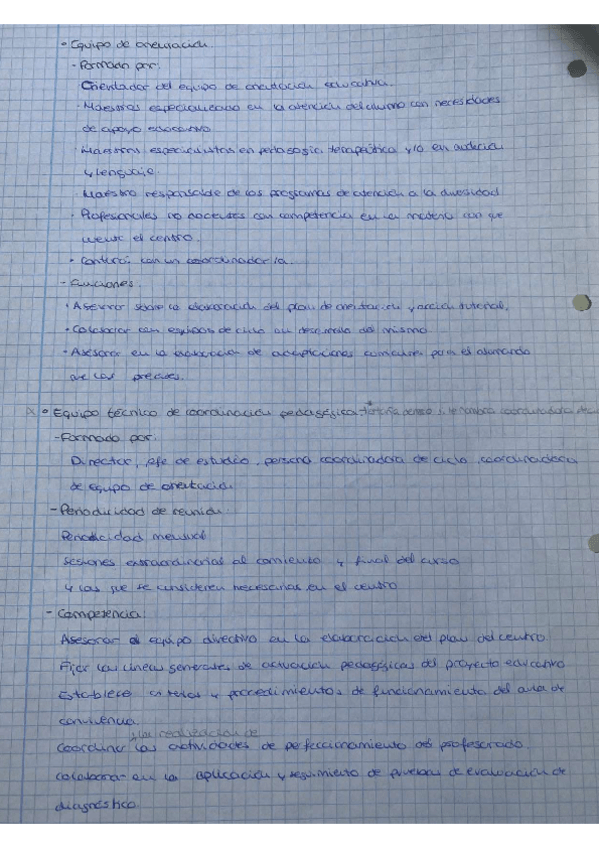 • Equipo de orientación.
- Formado por:
Orientador del equipo de orientación educativa.
• Maestros especializado en la atención del alumno con necesidades
de apoyo educativo
• Maestros especialistas en pedagogia terapéutica y/o en audición
y lenguaje.
Maestro responsable de los programas de atención a la diversidad
• Profesionales no docentes con competencia en la materia con que
cuente el centro.
• Contará con un coordinador/a.
- Funciones.
• Asesorar sobre la elaboración del plan de orientación y acción tutorial.
• Colaborar con equipos de ciclo en desarrollo del mismo.
• Asesorar en la elaboración de adaptaciones curriculares para el alumnado
que las precise.
• Equipo técnico de coordinación pedagógica
- Formado por:
Director, jefe de estudio, persona coordinadora de ciclo, coordinadora
de equipo de orientación
- Periodicidad de reunión
Periodicidad mensual
Sesiones extraordinarias al comienzo y final del curso
y las que se consideren necesarias en el centro
- Competencia:
Asesorar al equipo directivo en la elaboración del plan del centro.
Fijar las líneas generales de actuación pedagógicas del proyecto educativo
Establece criterios y procedimientos de funcionamiento del aula de
convivencia.
y las realización de
Coordinar las actividades de perfeccionamiento del profesorado.
Colaborar en la aplicación y seguimiento de pruebas de evaluación de
diagnóstico